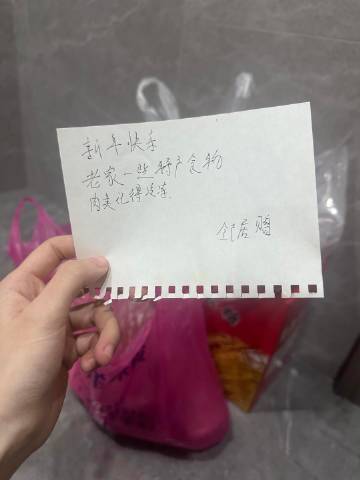 新年快乐
老家一些特产食物
肉类化得
邻居赠